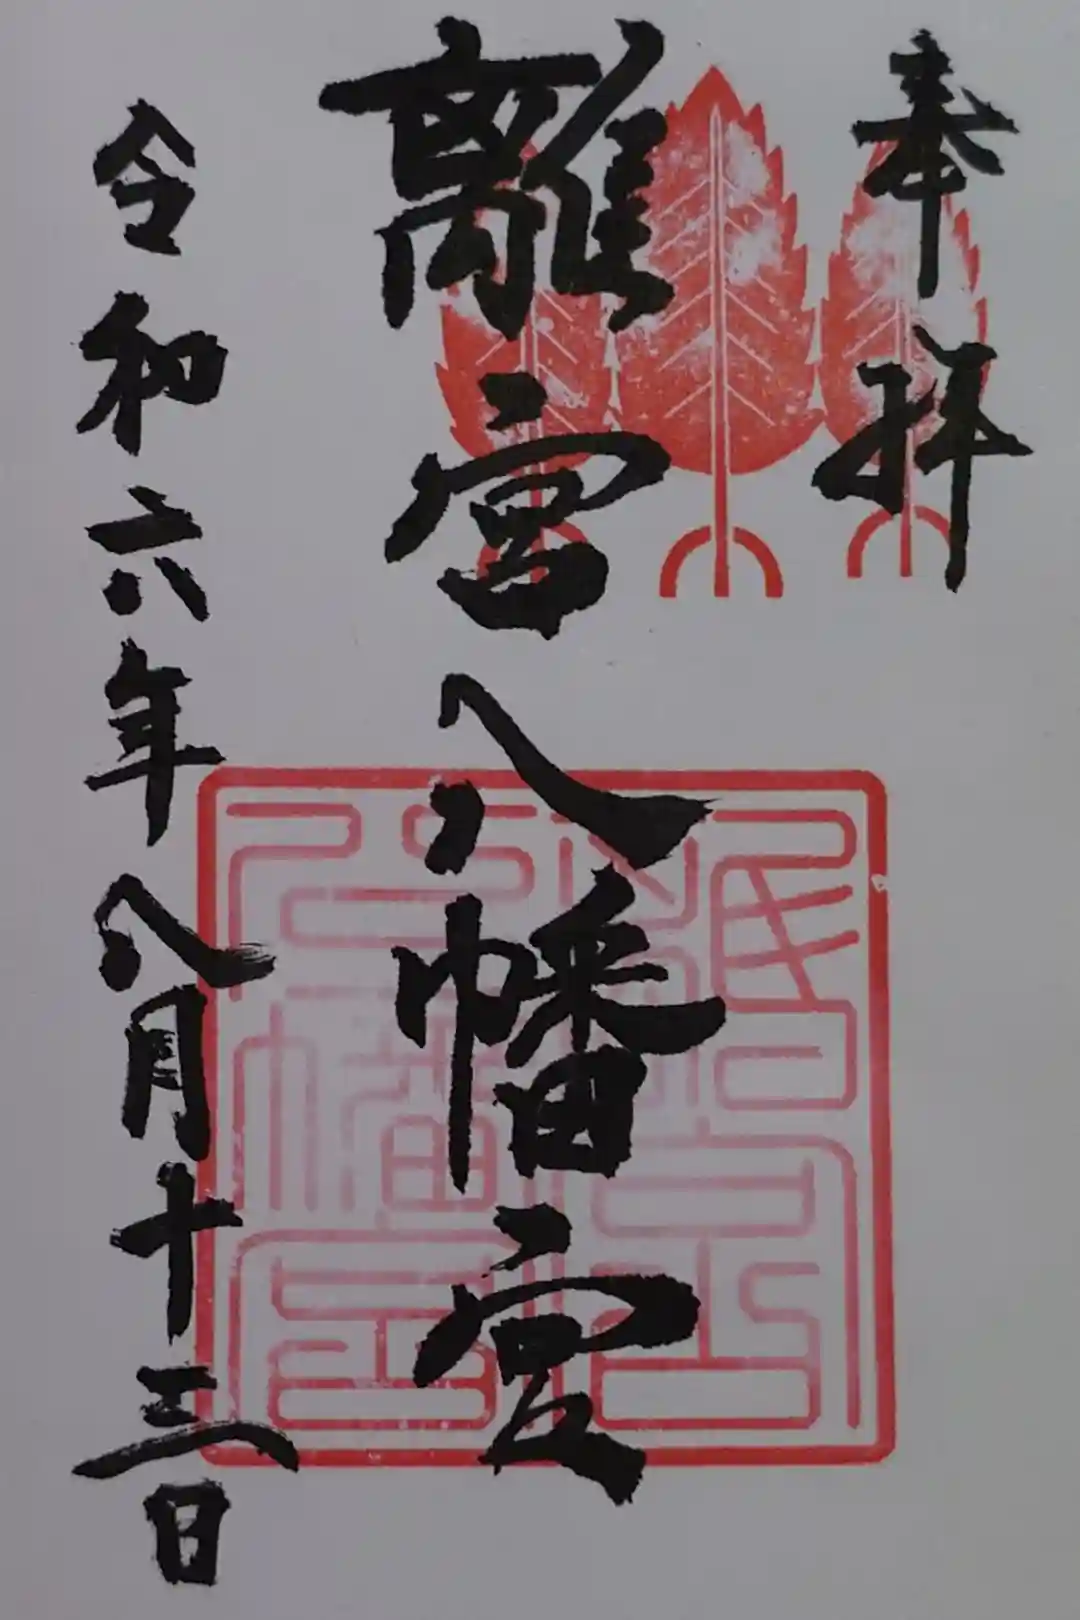 奉拝
離宮八幡宮
令和六年八月十三日
離宮八幡宮